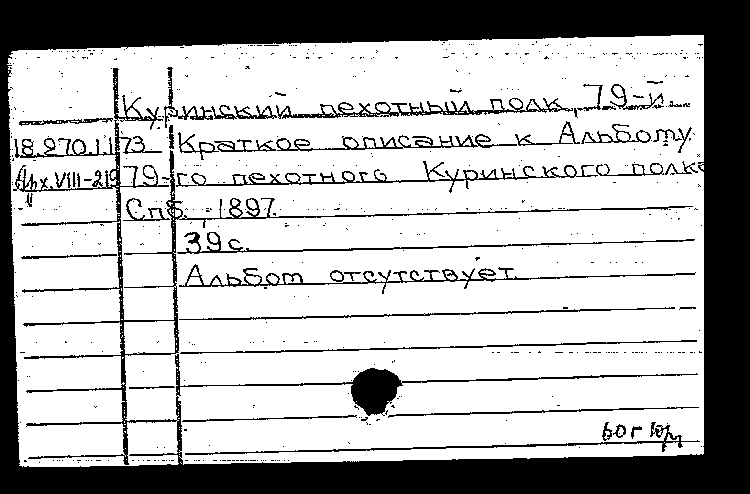 Куринский пехотный полк, 79-й.
18.270.1.173 Краткое описание к Альбому
Арх.VIII-219 79-го пехотного Куринского полка
Спб., 1897.
39 с.
Альбом отсутствует.
60 г